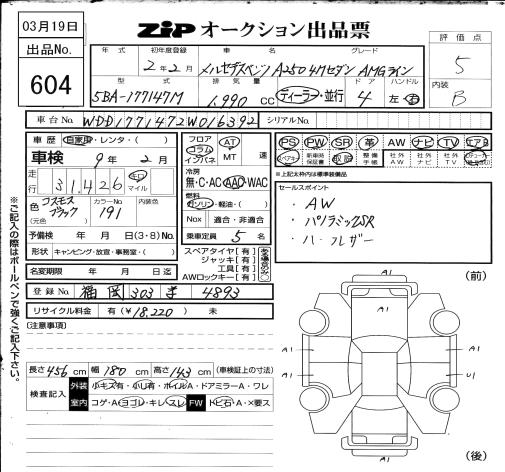 03月19日
ZIP オークション出品票
出品No.
604
評価点
5
内装
B
年式 初年度登録 車名 グレード
2年2月 メルセデスベンツ A250 4Mセダン AMGライン
型式 排気量 ドア ハンドル
5BA-177147M 1,990 CC ディーラー・並行 4 左・右
車台No. WDD1771472W016392 シリアルNo.
車歴 自家用・レンタ・( )
車検 9年2月
走行 31,426 キロ マイル
色 コスモスブラック カラーNo. 191 内装色
(元色)
予備検 年 月 日(3・8)No.
形状 キャンピング・放宣・事務室・( )
名変期限 年 月 日迄
フロア コラム インパネ AT MT 速
冷房 無・C・AC・AAC・WAC
燃料 ガソリン・軽油・( )
Nox 適合・非適合
乗車定員 5名
スペアタイヤ【有】
ジャッキ【有】
工具【有】
AWロックキー【有】
PS PW SR 革 AW ナビ TV エアB
スペアキー 新車時保証書 取説 整備手帳 社外AW 社外ナビ 社外TV
▲上記太枠内は標準装備品
セールスポイント
・AW
・パノラミックSR
・ハーフレザー
登録No. 福岡 303 ま 4893
リサイクル料金 有(¥18,220) 未
(注意事項)
※ご記入の際はボールペンで強くご記入下さい。
長さ456cm 幅180cm 高さ143cm (車検証上の寸法)
検査記入 外装 小キズ有・小凹有・ホイルA・ドアミラーA・ワレ
室内 コゲ・A・ヨゴレ・キレ・スレ FW トビ石・A・×要ス
(前)
A1
A1
A1 A1
A1 U1
A1
(後)